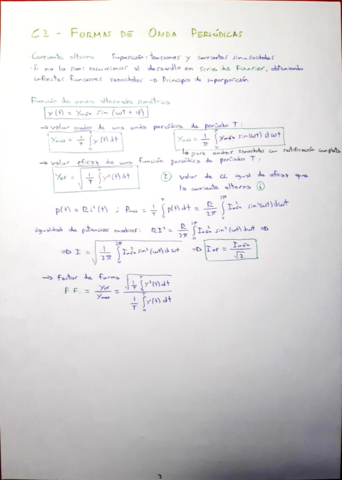 C2 - FORMAS DE ONDA PERIÓDICAS
Corriente alterna Suposición: tensiones y corrientes sinusoidales
Si no lo son: recurrimos al desarrollo en serie de Fourier, utilizando
infinitas funciones senoidales → Principio de superposición
Función de onda alternada simétrica
y(t) = Ymáx sin (ωt + φ)
→ valor medio de una onda periódica de período T:
Ymed = 1/T ∫₀ᵀ y(t) dt
→ para ondas senoidales con rectificación completa
→ valor eficaz de una función periódica de período T:
Yef = √(1/T ∫₀ᵀ y²(t) dt)
valor de cc igual de eficaz que
la corriente alterna
p(t) = R i²(t) ; Pmed = 1/T ∫₀ᵀ p(t) dt = R/2π ∫₀²π I²máx sin²(ωt) dωt
igualdad de potencias medias: R I² = R/2π ∫₀²π I²máx sin²(ωt) dωt ⇒
⇒ I = √(1/2π ∫₀²π I²máx sin²(ωt) dωt) ⇒ Ief = Imáx/√2
→ factor de forma
F.F. = Yef/Ymed = √(1/T ∫₀ᵀ y²(t) dt) / 1/T ∫₀ᵀ y(t) dt